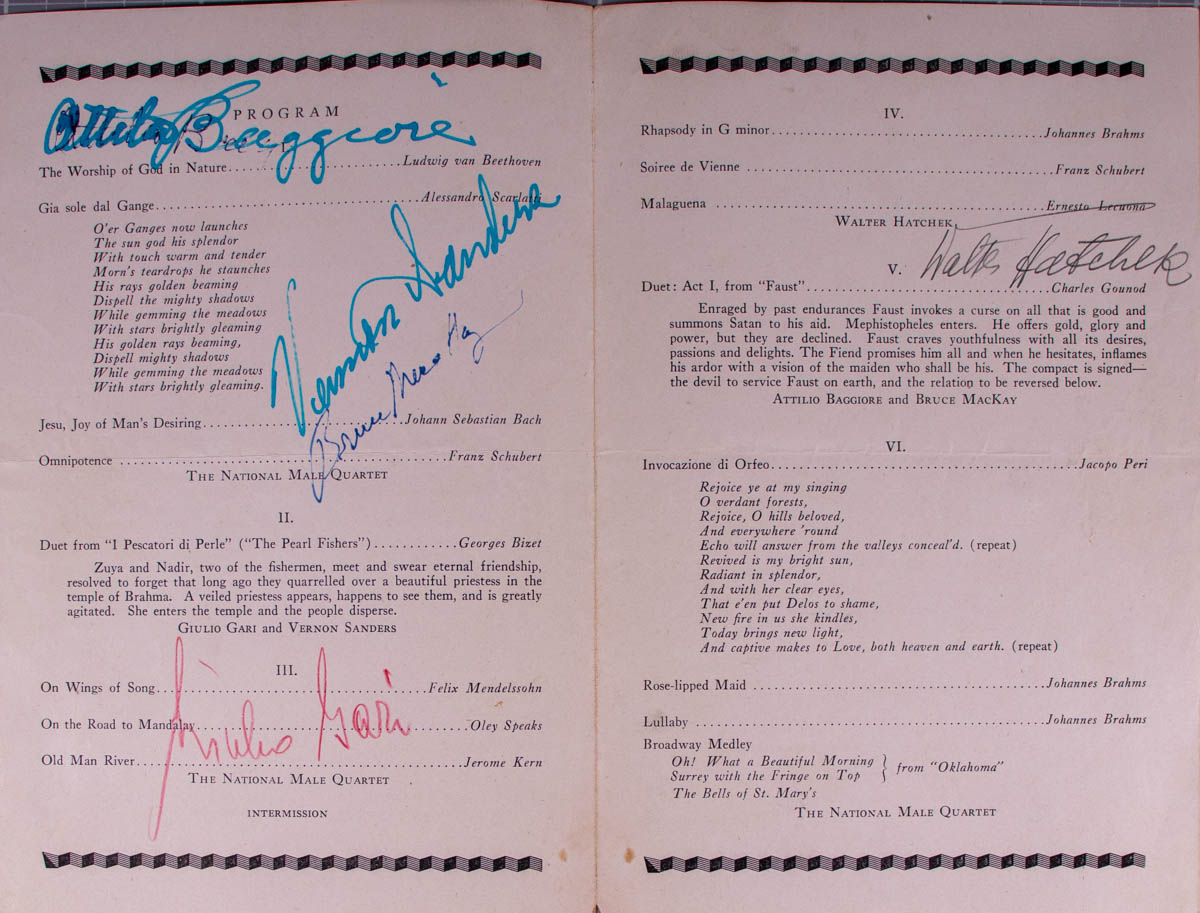 PROGRAM
Attilio Baggiore
The Worship of God in Nature..................Ludwig van Beethoven
Gia sole dal Gange..................Alessandro Scarlatti
O'er Ganges now launches
The sun god his splendor
With touch warm and tender
Morn's teardrops he staunches
His rays golden beaming
Dispell the mighty shadows
While gemming the meadows
With stars brightly gleaming
His golden rays beaming,
Dispell mighty shadows
While gemming the meadows
With stars brightly gleaming.
Vernon Sanders
Bruce MacKay
Jesu, Joy of Man's Desiring..................Johann Sebastian Bach
Omnipotence ..................Franz Schubert
THE NATIONAL MALE QUARTET
II.
Duet from "I Pescatori di Perle" ("The Pearl Fishers")............Georges Bizet
Zuya and Nadir, two of the fishermen, meet and swear eternal friendship,
resolved to forget that long ago they quarrelled over a beautiful priestess in the
temple of Brahma. A veiled priestess appears, happens to see them, and is greatly
agitated. She enters the temple and the people disperse.
GIULIO GARI and VERNON SANDERS
III.
On Wings of Song..................Felix Mendelssohn
On the Road to Mandalay..................Oley Speaks
Giulio Gari
Old Man River..................Jerome Kern
THE NATIONAL MALE QUARTET
INTERMISSION
IV.
Rhapsody in G minor..................Johannes Brahms
Soiree de Vienne ..................Franz Schubert
Malaguena ..................Ernesto Lecuona
WALTER HATCHEK
Walter Hatchek
V.
Duet: Act I, from "Faust"..................Charles Gounod
Enraged by past endurances Faust invokes a curse on all that is good and
summons Satan to his aid. Mephistopheles enters. He offers gold, glory and
power, but they are declined. Faust craves youthfulness with all its desires,
passions and delights. The Fiend promises him all and when he hesitates, inflames
his ardor with a vision of the maiden who shall be his. The compact is signed—
the devil to service Faust on earth, and the relation to be reversed below.
ATTILIO BAGGIORE and BRUCE MACKAY
VI.
Invocazione di Orfeo..................Jacopo Peri
Rejoice ye at my singing
O verdant forests,
Rejoice, O hills beloved,
And everywhere 'round
Echo will answer from the valleys conceal'd. (repeat)
Revived is my bright sun,
Radiant in splendor,
And with her clear eyes,
That e'en put Delos to shame,
New fire in us she kindles,
Today brings new light,
And captive makes to Love, both heaven and earth. (repeat)
Rose-lipped Maid ..................Johannes Brahms
Lullaby ..................Johannes Brahms
Broadway Medley
Oh! What a Beautiful Morning
Surrey with the Fringe on Top } from "Oklahoma"
The Bells of St. Mary's
THE NATIONAL MALE QUARTET